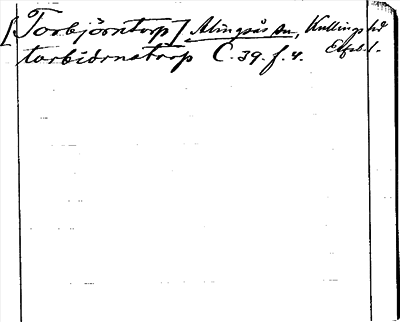 [Torbjörntorp] Alingsås sn, Kullings hd
torbiörnatorp C. 39. f. 4. Elfsb. l.